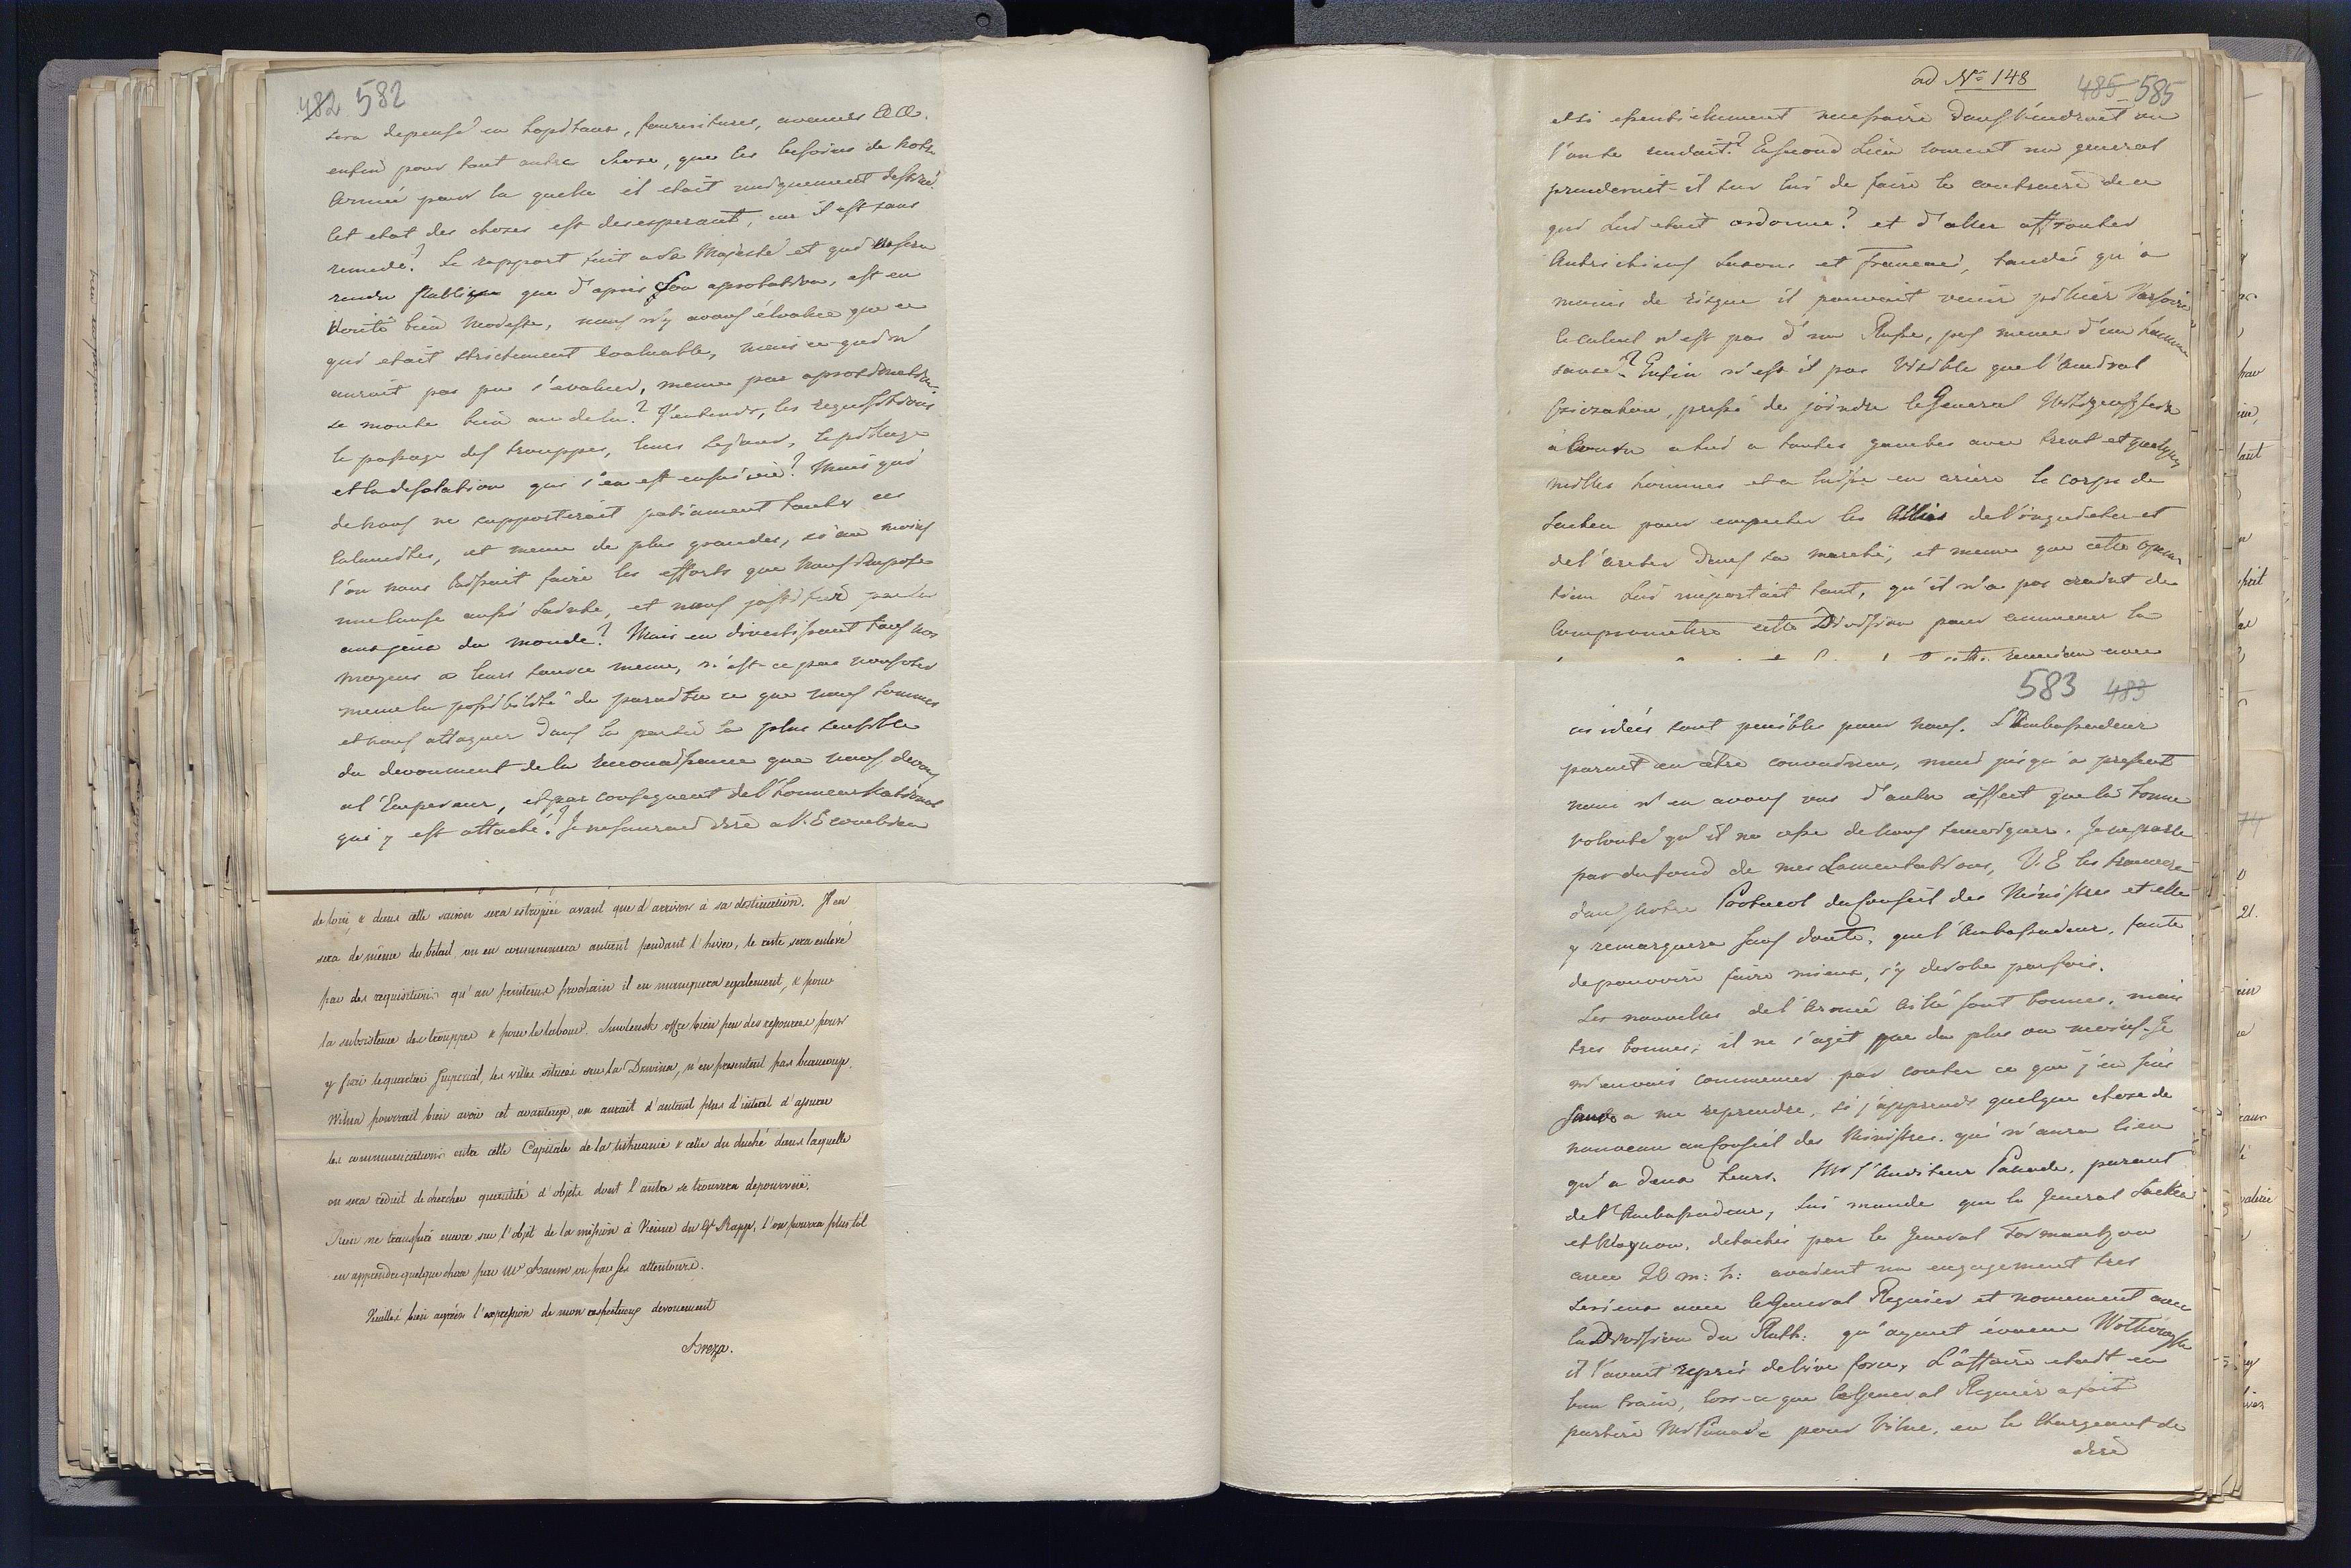 482 582
sera depensé en hopitaux, fournitures, avances &&.
enfin pour tout autre chose, que les besoins de notre
Armée pour la quelle il etait uniquement destiné.
Cet etat des choses est desesperant, car il est sans
remede? Le rapport fait a Sa Majesté et qui ne sera
rendu public que d'après Son aprobation, est en
Verité bien modeste, nous n'y avons évalué que ce
qui etait strictement evaluable, mais ce qui n'
aurait pas pu s'evaluer, meme par aproximation
se monte bien au dela? J'entends, les requisitions
le passage des trouppes, leurs sejours, le pillage
et la desolation qui s'en est ensuivie? Mais qui
de nous ne supporterait patiament toutes ces
Calamités, et meme de plus grandes, si au moins
l'on nous laissait faire les efforts que nous impose
une cause aussi Sainte, et nous justifier par la
aux yeux du monde? Mais en divertissant tous nos
moyens a leur source meme, n'est-ce pas nous oter
meme la possibilité de paraitre ce que nous sommes
et nous attaquer dans la partie la plus sensible
du devoument de la reconaissance que nous devons
a l'Empereur, et par consequent de l'honneur National
qui y est attaché? Je ne saurais dire a V.E combien
de loin, & dans cette saison sera estropiée avant que d'arriver à sa destination. Il en
sera de même du bétail, on en consummera autant pendant l'hiver, le reste sera enlevé
par des requisitions qu'au printems prochain il en manquera egalement, & pour
la subsistence des trouppes & pour le labour. Smolensk offre bien peu des ressources pour
y fixer le quartier Imperial, les villes situées sur la Dzwina, n'en presentent pas beaucoup.
Wilna pourrait bien avoir cet avantage, on aurait d'autant plus d'interet d'assurer
les communications entre cette Capitale de la Lithuanie & celle du duché dans laquelle
on sera reduit de chercher quantité d'objets dont l'autre se trouvera depourvüe.
Rien ne transpire encore sur l'objet de la mission à Vienne du Gl Rapp, l'on pourra plustôt
en apprendre quelque chose par Mr Baum ou par ses attentours.
Veuillez bien agréer l'expression de mon respectueux devouement
Breza.
ad No 148
485 585
et si essentielement necessaire dans l'endroit ou
l'ordre Ensecond Lieu coment un general
prenderait-il sur lui de faire le contraire de ce
qui Lui etait ordonné? et d'aller affronter
Autrichiens Saxons et Francais, tandis qu'a
moins de risque il pouvait venir pillier Varsovie
le calcul n'est pas d'un Russe, pas meme d'un homme
sensé? Enfin n'est il pas Visible que l'Amiral
Cziczakow, pressé de joindre le General Wittgenstein
a tout a toutes jambes avec trent et quelques
milles hommes et a laissé en ariere le corps de
Sacken pour empecher les Alliés de l'inquieter et
de l'areter dans sa marche, et meme que cette opera
tion Lui importait tant, qu'il n'a pas craint de
Compromettre cette Division pour emmener la
reunion avec
583 483
ces idées sont penibles pour nous. L'Ambassadeur
parait en être convaincu, mais jusqu'a present
nous n'en avons vus d'autre effect que la bonne
volonté qu'il ne cesse de nous temoigner. Je ne parle
pas du fond de mes Lamentations, V.E les trouvera
dans notre Protocol du Conseil des Ministres et elle
y remarquera sans doute, que l'Ambassadeur, faute
de pouvoir faire mieux, s'y derobe parfois.
Les nouvelles de l'Armée Alliée sont bonnes, mais
tres bonnes; il ne s'agit que du plus ou moins. Je
m'en vais commencer par conter ce que j'en sais
sauf a me reprendre, si j'apprends quelque chose de
nouveau au Conseil des Ministres, qui n'aura lieu
qu'a deux heurs. Mr l'Auditeur Panade, parent
de l'Ambassadeur, Lui mande que le General Sacken
et Woynow, detachés par le General Tormantzow
avec 20 m: h: avaient un engagement tres
serieux avec le General Regnier et nomement avec
la Division Du Rutt: qu'ayant évacué Wolkowysk
il l'avait repris de vive force, L'affaire etait en
bon train, lors-ce que le General Regnier a fait
partire Mr Panade pour Vilne, en le Chargeant de
dire